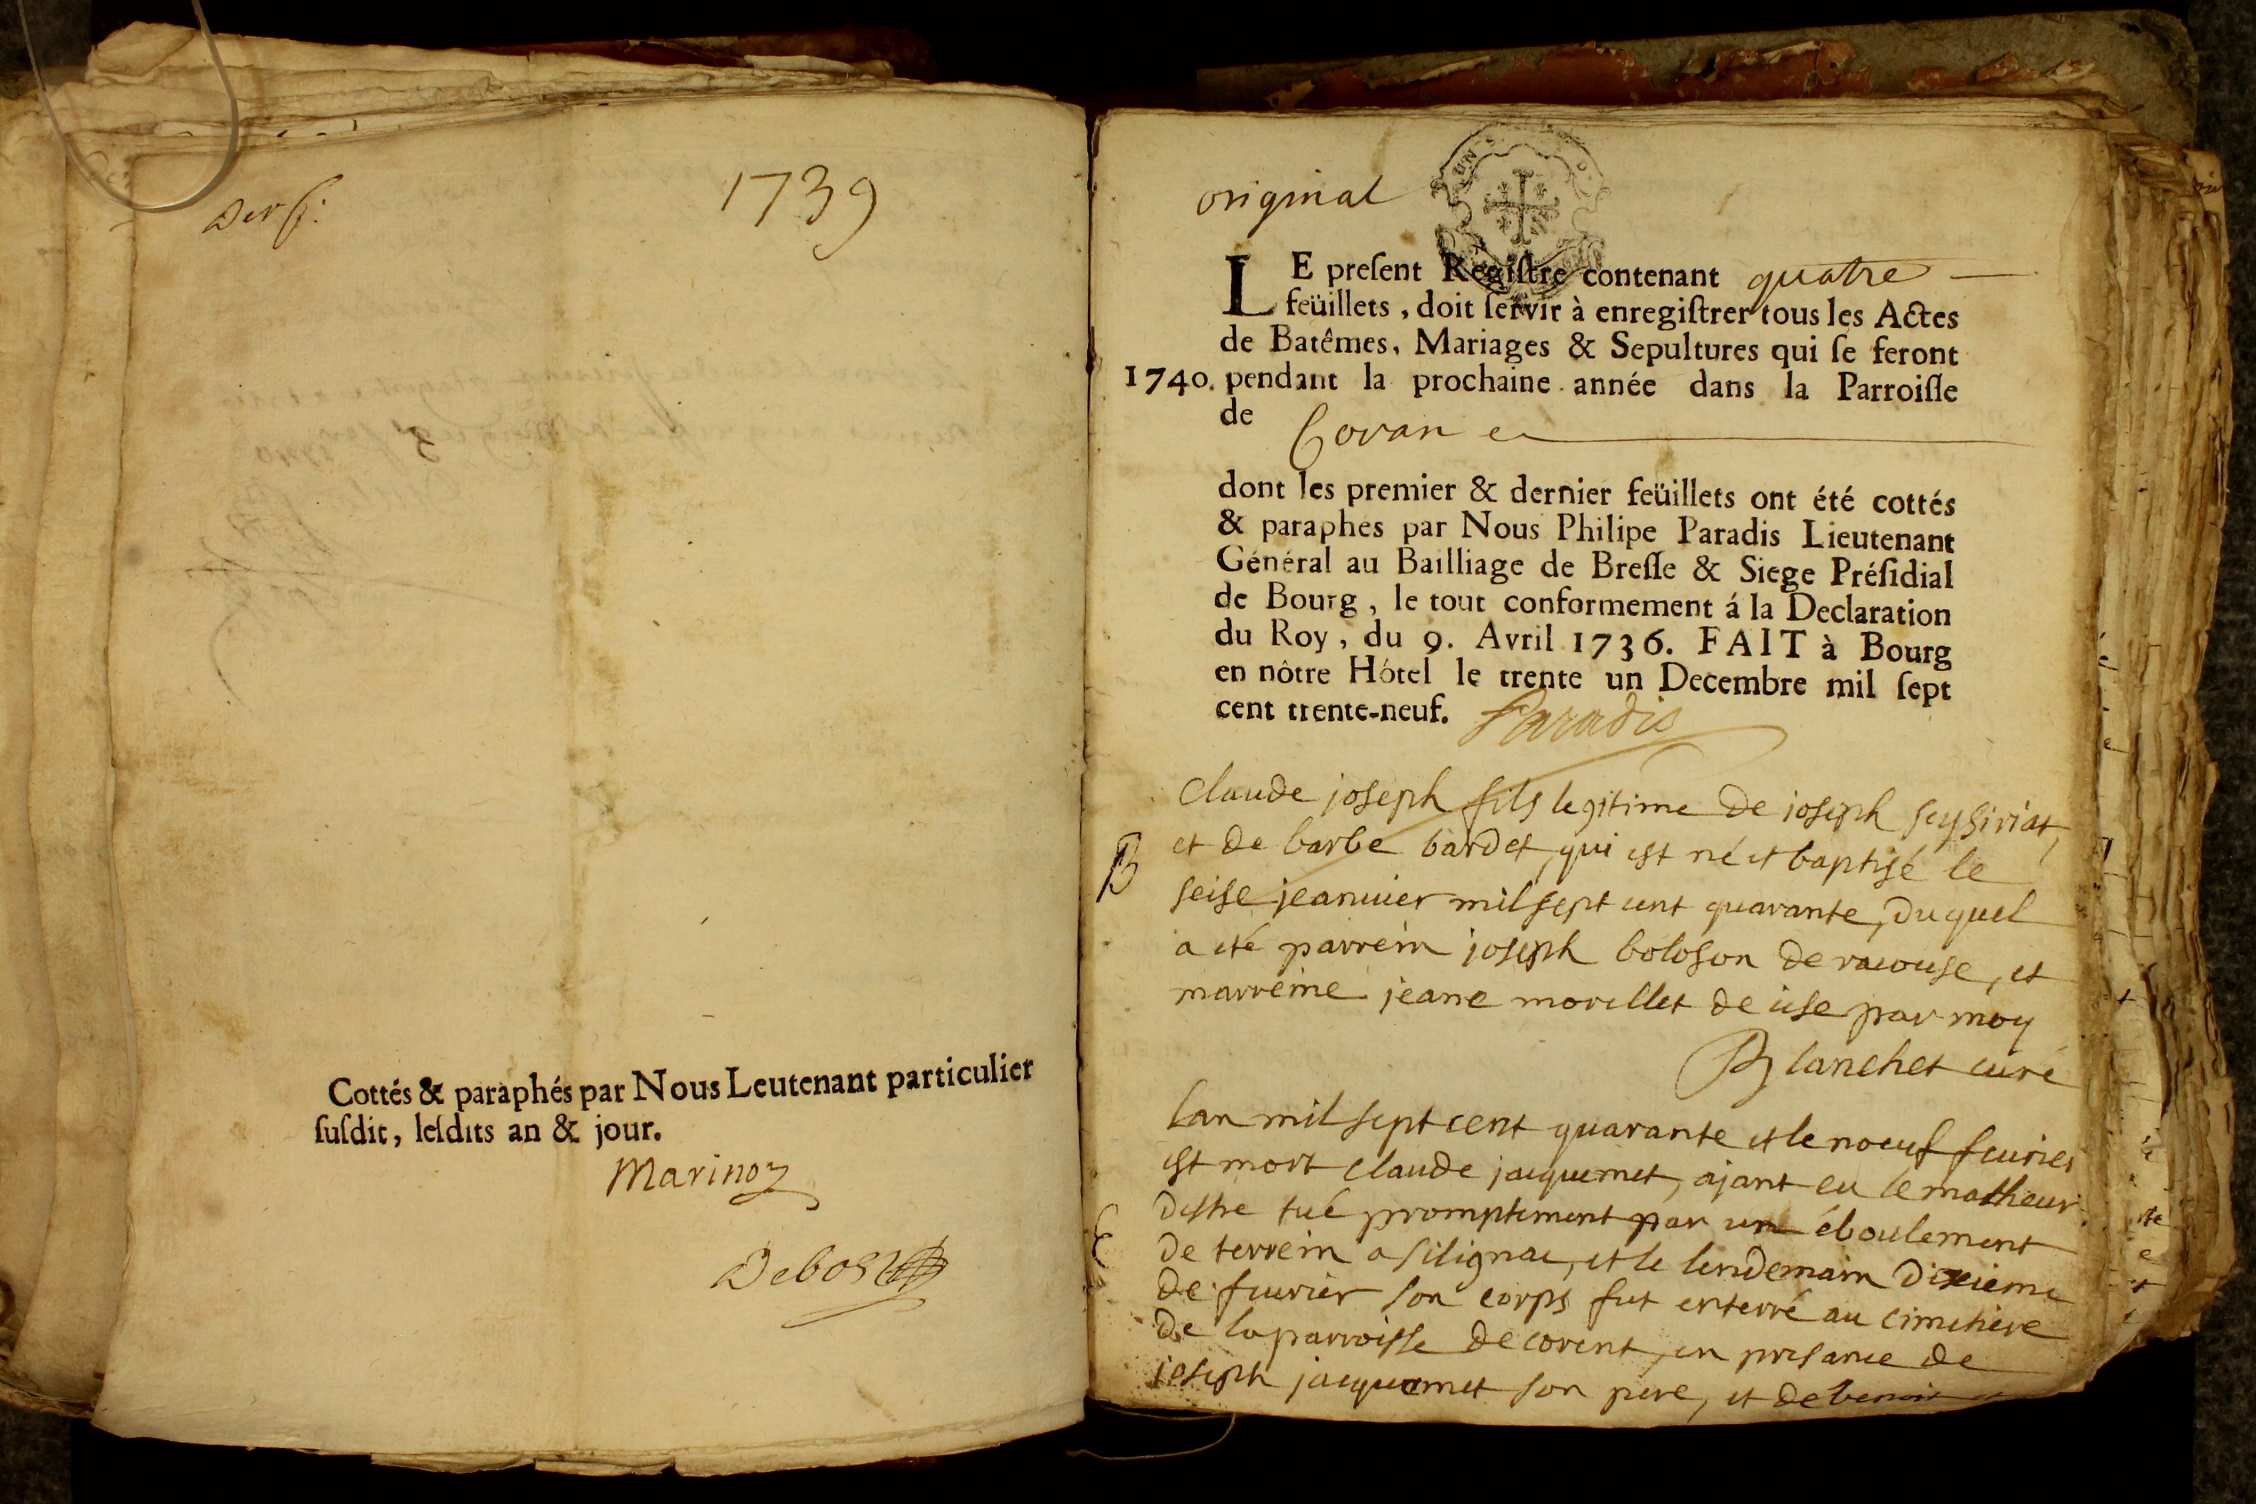 1739
Cottés & paraphés par Nous Leutenant particulier
ſuſdit, leſdits an & jour.
Marinoz
original
LE preſent Regiſtre contenant quatre
feüillets, doit ſervir à enregiſtrer tous les Actes
de Batêmes, Mariages & Sepultures qui ſe feront
1740. pendant la prochaine année dans la Parroiſſe
de
Coran
dont les premier & dernier feüillets ont été cottés
& paraphes par Nous Philipe Paradis Lieutenant
Général au Bailliage de Breſſe & Siege Préſidial
de Bourg, le tout conformement á la Declaration
du Roy, du 9. Avril 1736. FAIT à Bourg
en nôtre Hótel le trente un Decembre mil ſept
cent trente-neuf. Paradis
claude joseph fils legitime de joseph seysiriat,
B et de barbe bardet, qui est né et baptisé le
seise jeanvier mil sept cent quarante, duquel
a eté parrein joseph boloson de racouse, et
marreine jeane morellet de
par moy
Blanchet curé
lan mil sept cent quarante et le noeuf feurier
est mort claude jacquemet, ajant eu le malheur
destre tué promptement par un éboulement
de terrein a silignac, et le lendemain dixieme
de feurier son corps fut enterré au cimetiere
de la parroisse de corent, en presance de
joseph jacquemet son pere, et de benoit